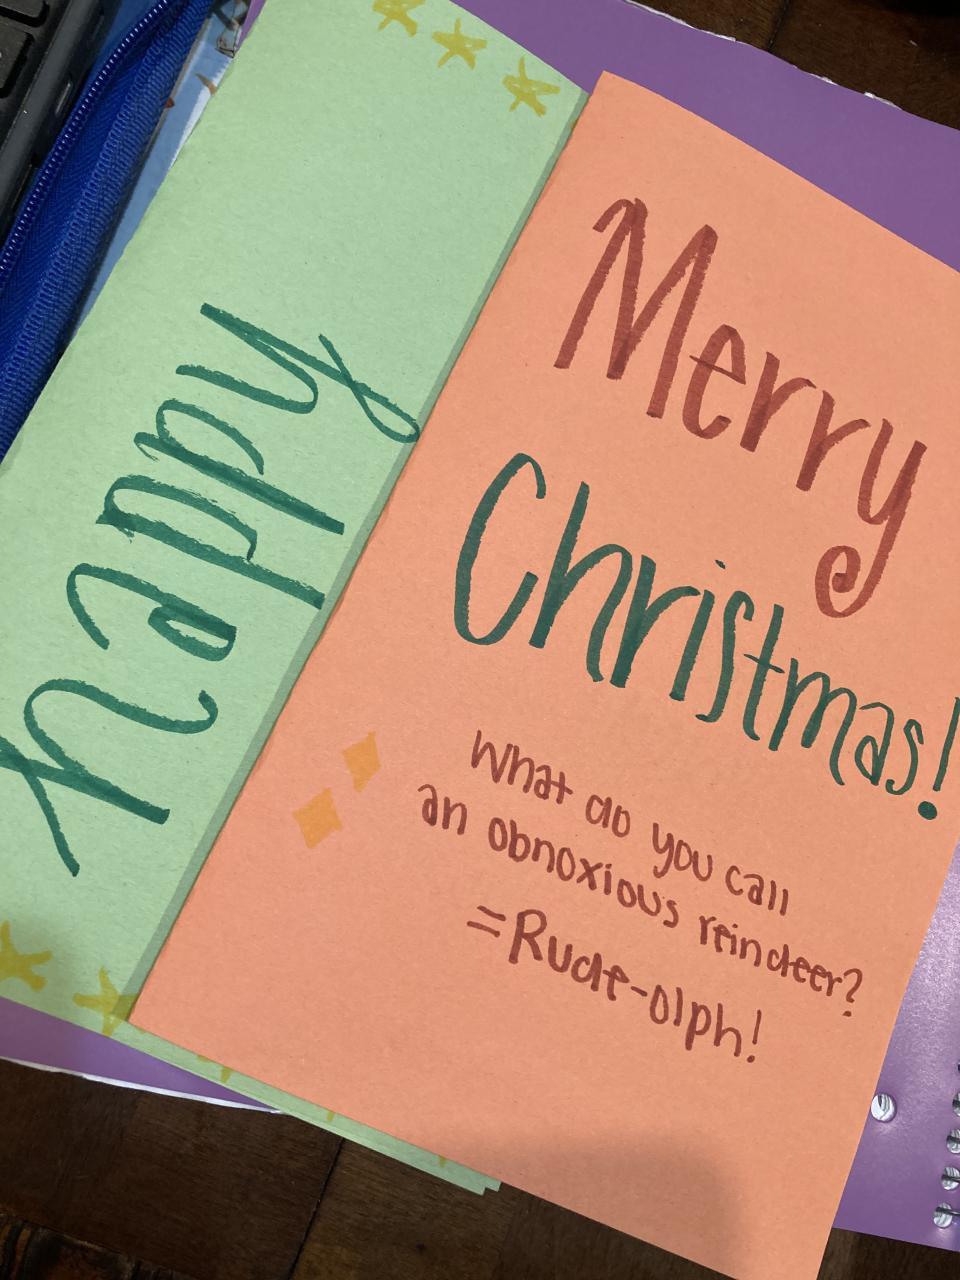 happy
Merry
Christmas!
What do you call
an obnoxious reindeer?
=Rude-olph!